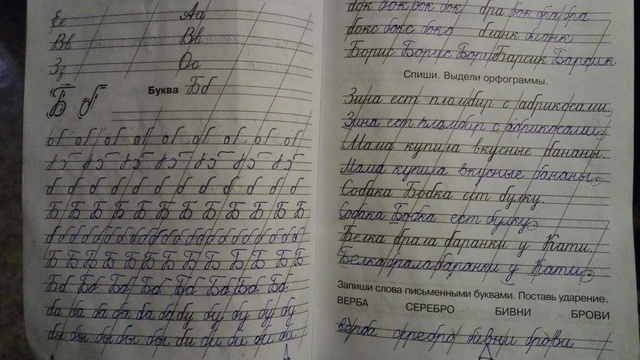 Ее Аа
Вв Вв
Зз Оо
Буква Бб
Б б
б б б б б б б б б б
Б Б Б Б Б Б Б Б Б Б Б Б
Бо Бо Бо Бо Бо Бо Бо Бо
ба ба ба ба ба бу бу бу бу бу
бы бы бы бы бы би би би би би
бок бок бок бок бра бок бра бра
бокс бокс бокс бланк бланк
Борис Борис Борис Барсик Барсик
Спиши. Выдели орфограммы.
Зина ест пломбир с абрикосами.
Зина ест пломбир с абрикосами.
Мама купила вкусные бананы.
Мама купила вкусные бананы.
Собака Бобка ест булку.
Собака Бобка ест булку
Белка брала баранки у Кати.
Белка брала баранки у Кати.
Запиши слова письменными буквами. Поставь ударение.
ВЕРБА СЕРЕБРО БИВНИ БРОВИ
верба серебро бивни брови